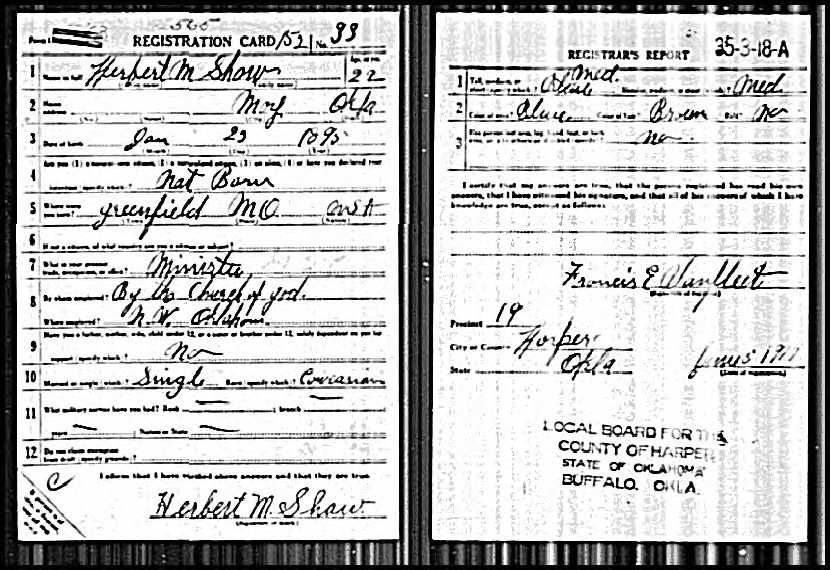 565
REGISTRATION CARD 152 No. 33
1 Name in full Herbert M Shaw Age, in yrs. 22
2 Home address May Okla
3 Date of birth Jan 23 1895
Are you (1) a natural-born citizen, (2) a naturalized citizen, (3) an alien, (4) or have you declared your
4 intention (specify which)? Nat Born
5 Where were you born? Greenfield MO USA
6 If not a citizen, of what country are you a citizen or subject?
7 What is your present trade, occupation, or office? Minister
8 By whom employed? By the Church of god.
Where employed? N.W. Oklahoma
Have you a father, mother, wife, child under 12, or a sister or brother under 12, solely dependent on you for
9 support (specify which)? No
10 Married or single (which)? Single Race (specify which)? Caucasian
11 What military service have you had? Rank — ; branch —
years — ; Nation or State —
12 Do you claim exemption from draft (specify grounds)?
I affirm that I have verified above answers and that they are true.
Herbert M. Shaw
REGISTRAR'S REPORT 35-3-18-A
1 Med. Med
2 Color of eyes? Blue Color of hair? Brown Bald? No
3 No
I certify that my answers are true, that the person registered has read his own
answers, that I have witnessed his signature, and that all of his answers of which I have
knowledge are true, except as follows:
Francis E Vanfleet
Precinct 19
City or County Harper
State Okla June 5 1917
LOCAL BOARD FOR THE
COUNTY OF HARPER
STATE OF OKLAHOMA
BUFFALO, OKLA.